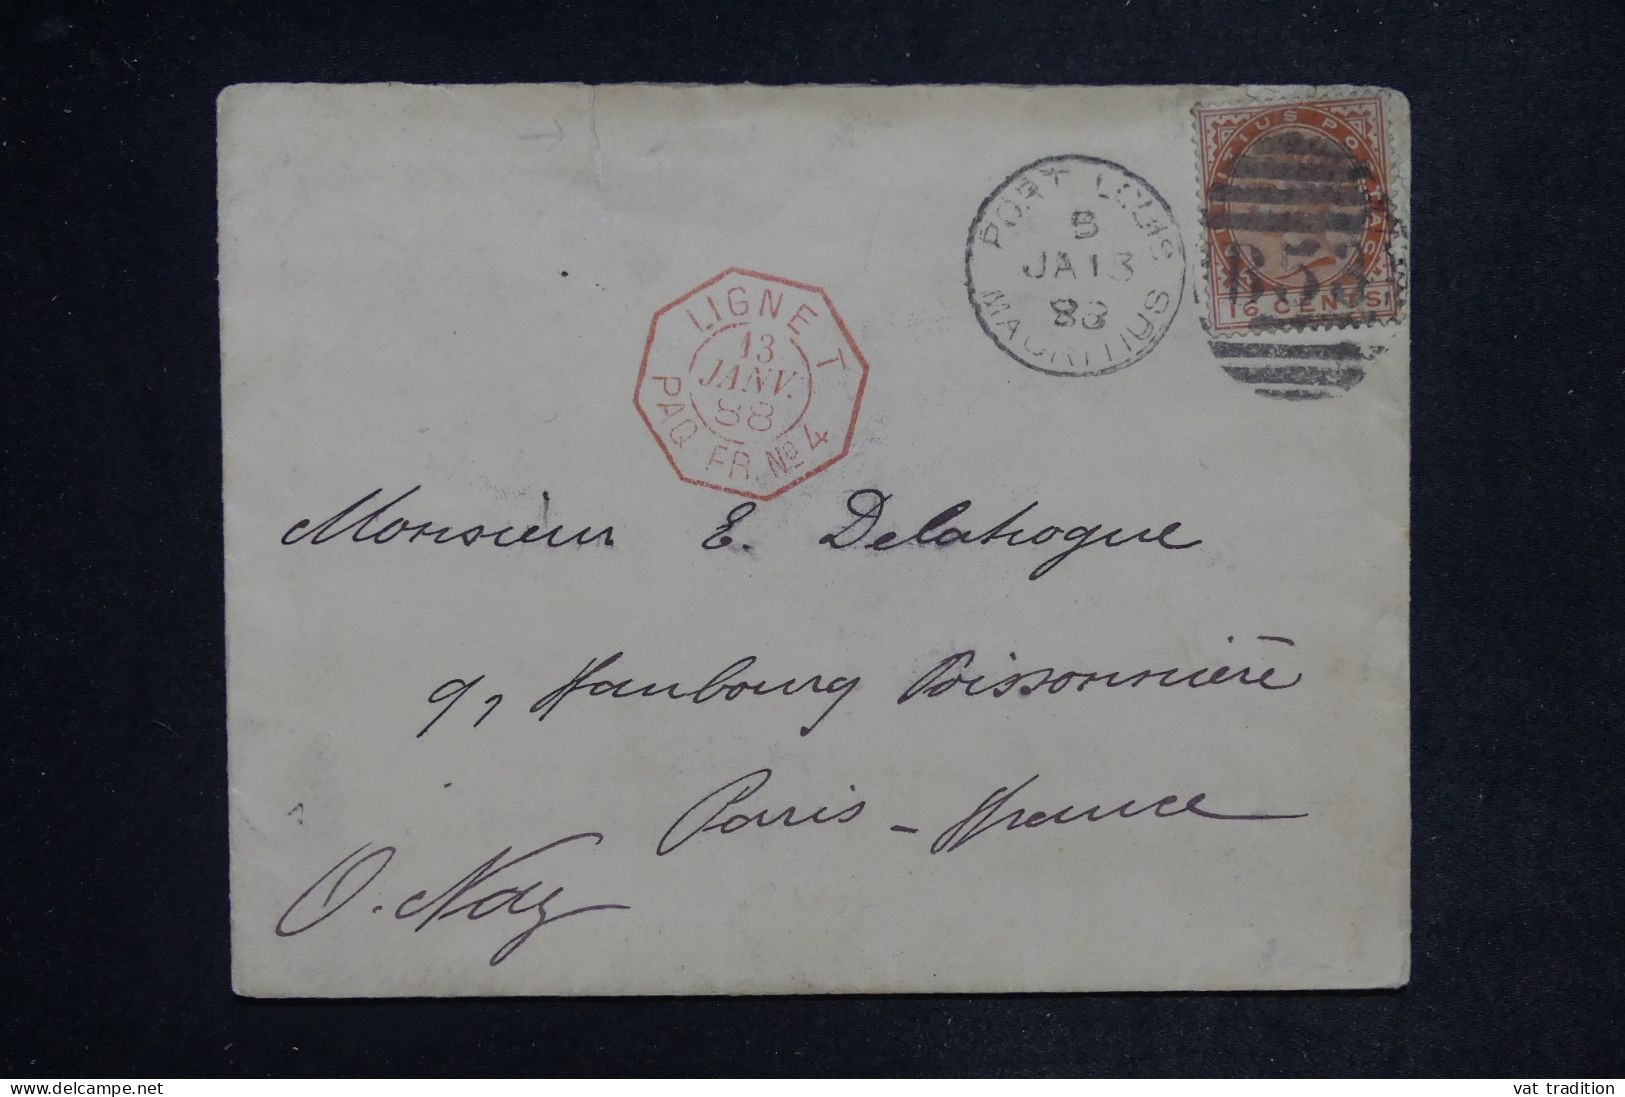 PORT LOUIS
B
JA 13
88
MAURITIUS
B53
16 CENTS
LIGNE T
13
JANV.
88
PAQ. FR. No 4
Monsieur E. Delahogue
9, Faubourg Poissonnière
Paris - France
delcampe.net
vat tradition